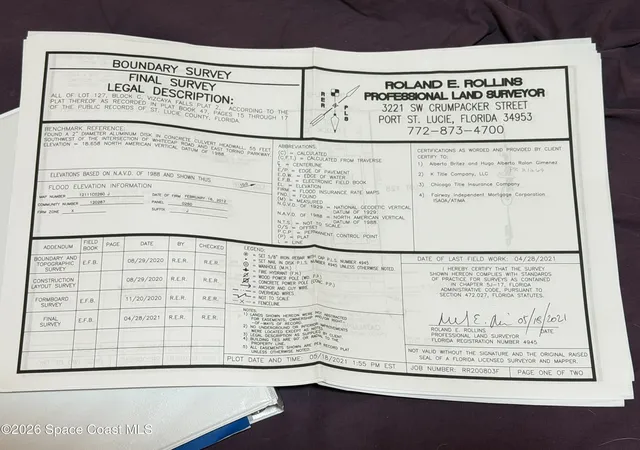 BOUNDARY SURVEY
FINAL SURVEY
LEGAL DESCRIPTION:
ALL OF LOT 127, BLOCK C, VIZCAYA FALLS PLAT 2, ACCORDING TO THE
PLAT THEREOF AS RECORDED IN PLAT BOOK 47, PAGES 15 THROUGH 17
OF THE PUBLIC RECORDS OF ST. LUCIE, COUNTY, FLORIDA.
RER PLS
ROLAND E. ROLLINS
PROFESSIONAL LAND SURVEYOR
3221 SW CRUMPACKER STREET
PORT ST. LUCIE, FLORIDA 34953
772-873-4700
BENCHMARK REFERENCE:
FOUND A 2" DIAMETER ALUMINUM DISK IN CONCRETE CULVERT HEADWALL, 55 FEET
SOUTHWEST OF THE INTERSECTION OF WHITECAP ROAD AND EAST TORINO PARKWAY.
ELEVATION = 18.658 NORTH AMERICAN VERTICAL DATUM OF 1988
ELEVATIONS BASED ON N.A.V.D. OF 1988 AND SHOWN THUS
FLOOD ELEVATION INFORMATION
MAP NUMBER
DATE OF FIRM FEBRUARY 16, 2012
COMMUNITY NUMBER 120287
PANEL
FIRM ZONE X
SUFFIX
ABBREVIATIONS:
(C) = CALCULATED
(C.F.T.) = CALCULATED FROM TRAVERSE
= CENTERLINE
E/P = EDGE OF PAVEMENT
E.O.W. = EDGE OF WATER
E.F.B. = ELECTRONIC FIELD BOOK
EL. = ELEVATION
FIRM = FLOOD INSURANCE RATE MAP
FND. = FOUND
(M) = MEASURED
N.G.V.D. OF 1929 = NATIONAL GEODETIC VERTICAL
DATUM OF 1929
N.A.V.D. OF 1988 = NORTH AMERICAN VERTICAL
DATUM OF 1988
N.T.S. = NOT TO SCALE
O/S = OFFSET
P.C.P. = PERMANENT CONTROL POINT
(P) = PLAT
L = LINE
CERTIFICATIONS AS WORDED AND PROVIDED BY CLIENT
CERTIFY TO:
1) Alberto Britez and Hugo Alberto Rolon Gimenez
2) K Title Company, LLC
3) Chicago Title Insurance Company
4) Fairway Independent Mortgage Corporation
ISAOA/ATIMA
ADDENDUM FIELD BOOK PAGE DATE BY CHECKED
BOUNDARY AND TOPOGRAPHIC SURVEY E.F.B. 08/29/2020 R.E.R. R.E.R.
CONSTRUCTION LAYOUT SURVEY E.F.B. 08/29/2020 R.E.R. R.E.R.
FORMBOARD SURVEY E.F.B. 11/20/2020 R.E.R. R.E.R.
FINAL SURVEY E.F.B. 04/28/2021 R.E.R. R.E.R.
LEGEND:
= SET 5/8" IRON REBAR WITH CAP P.L.S. NUMBER 4945
= SET NAIL IN DISK P.L.S. NUMBER 4945 UNLESS OTHERWISE NOTED.
= MANHOLE (M.H.)
= FIRE HYDRANT (F.H.)
= WOOD POWER POLE (W.P.P.)
= CONCRETE POWER POLE
= ANCHOR AND GUY WIRE
= OVERHEAD WIRES
= NOT TO SCALE
= FENCELINE
NOTES:
PLOT DATE AND TIME: 05/18/2021 1:55 PM EST
DATE OF LAST FIELD WORK: 04/28/2021
I HEREBY CERTIFY THAT THE SURVEY
SHOWN HEREON COMPLIES WITH STANDARDS
OF PRACTICE FOR SURVEYS AS CONTAINED
IN CHAPTER 5J-17, FLORIDA
ADMINISTRATIVE CODE, PURSUANT TO
SECTION 472.027, FLORIDA STATUTES.
05/18/2021
ROLAND E. ROLLINS DATE
PROFESSIONAL LAND SURVEYOR
FLORIDA REGISTRATION NUMBER 4945
NOT VALID WITHOUT THE SIGNATURE AND THE ORIGINAL RAISED
SEAL OF A FLORIDA LICENSED SURVEYOR AND MAPPER.
JOB NUMBER: RR200803F PAGE ONE OF TWO
©2026 Space Coast MLS